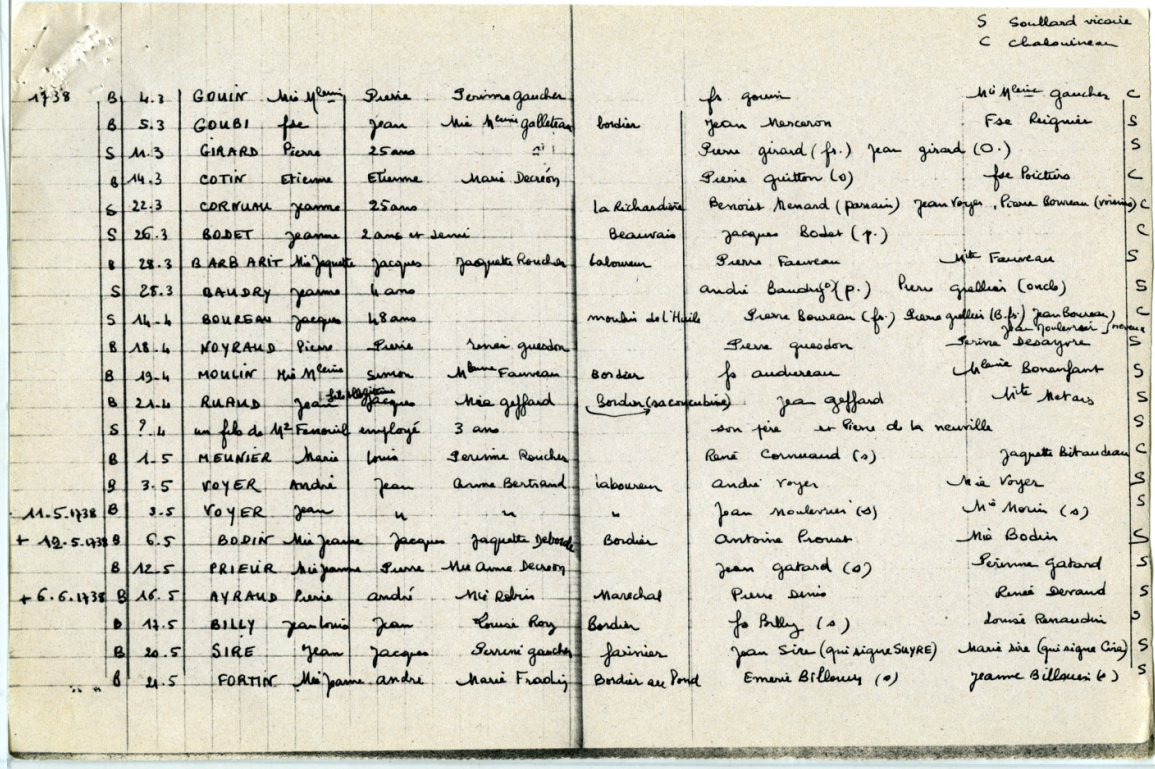 S Soullard vicaire
C Chalouineau
1738 B 4.3 GOUIN Mie Mleine Pierre Perinne gaucher fs gouin Mie Mleine gaucher C
B 5.3 GOUBI fse Jean Mie Mleine galleteau bordier Jean Merceron Fse Reignier S
S 11.3 GIRARD Pierre 25 ans Pierre girard (fr.) Jean girard (O.) S
B 14.3 COTIN Etienne Etienne Marie Decréon Pierre guitton (s) fse Poictiers C
S 22.3 CORNUAU Jeanne 25 ans La Richardière Benoist Menard (parrain) Jean Voyer, Pierre Boureau (voisins) C
S 26.3 BODET Jeanne 2 ans et demi Beauvais Jacques Bodet (p.) C
B 28.3 BARBARIT Mie Jaquette Jacques Jacquette Roucher Laboureur Pierre Fauveau Mite Fauveau S
S 28.3 BAUDRY Jeanne 4 ans andré Baudry (p.) Pierre grellier (oncle) S
S 14.4 BOUREAU Jacques 48 ans moulin de l'Huile Pierre Boureau (fr.) Pierre grellier (B.fr.) Jean Boureau) C
Jean Moulevrier } neveux
B 18.4 NOYRAUD Pierre Pierre renée guesdon Pierre guesdon Perine Desayvre S
B 19.4 MOULIN Mie Mleine Simon Mleine Fauveau Bordier fs audureau Mleine Bonenfant S
B 21.4 RUAUD Jean fils illégitime Jacques Mie geffard Bordier (sa concubine) Jean geffard Mite Metais S
S ?.4 un fils de Mr Fenouil employé 3 ans son père et Pierre de la neuville S
B 1.5 MEUNIER Marie Louis Perinne Roucher René Cornuaud (s) Jaquette Bitaudeau C
B 3.5 VOYER André Jean Anne Bertrand laboureur andré Voyer Mie Voyer S
11.5.1738 B 3.5 VOYER Jean " " " Jean Moulevrier (s) Mie Morin (s) S
+ 19.5.1738 B 6.5 BODIN Mie Jeanne Jacques Jaquette Deborde Bordier Antoine Proust Mie Bodin S
B 12.5 PRIEUR Mie Jeanne Pierre Mie Anne Decreon Jean gatard (s) Perinne gatard S
+ 6.6.1738 B 16.5 AYRAUD Pierre andré Mie Robin Marechal Pierre Denis Renée Devaud S
B 17.5 BILLY Jean Louis Jean Louise Roy Bordier fs Billy (s) Louise Renaudin S
B 20.5 SIRE Jean Jacques Perrine gaucher farinier Jean Sire (qui signe SUYRE) Marie sire (qui signe Cire) S
" " B 21.5 FORTIN Mie Jeanne andré Marie Fradin Bordier au Pond Emerie Billouin (s) Jeanne Billouin (s) S